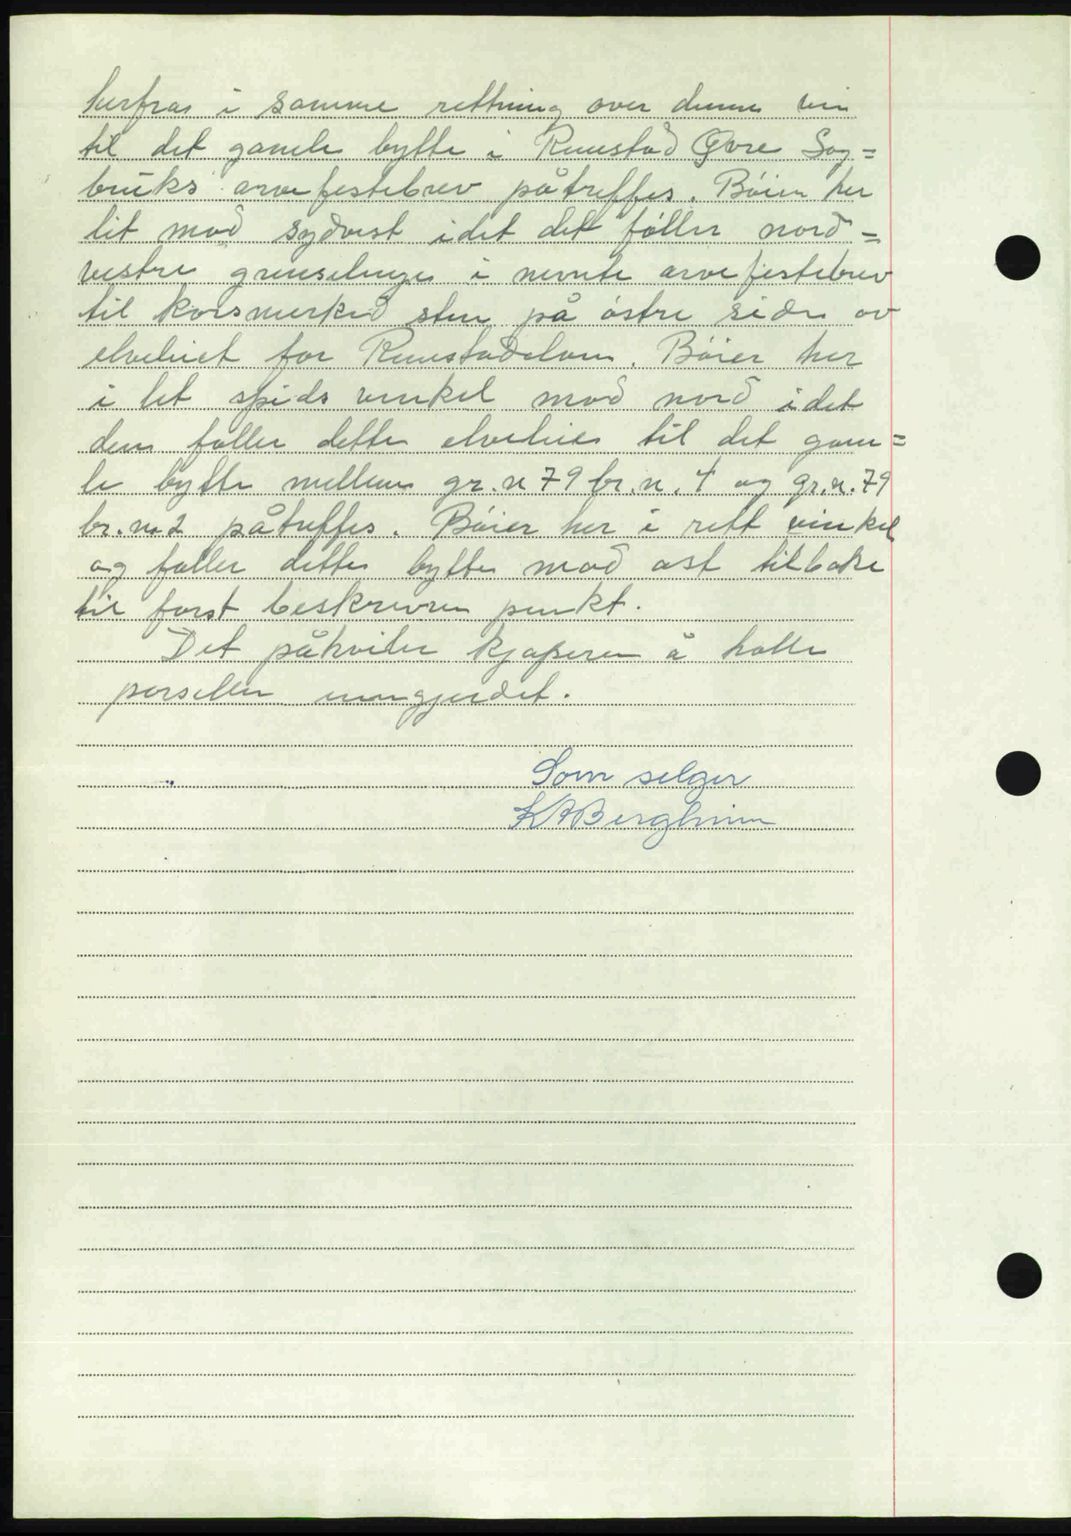 herfra i samme rettning over denne vei
til det gamle bytte i Ruustad Øvre Sag=
bruks arvefestebrev påtreffes. Bøier her
lit mod sydvest idet det føller nord=
vestre grenselinje i nevnte arvefestebrev
til korsmerked sten på østre side av
elveleiet for Ruustadelven. Bøier her
i let spids vinkel mod nord idet
den føller dette elveleie til det gam=
le bytte mellem gr.n 79 br.n. 4 og gr.n. 79
br.n. 2 påtreffes. Bøier her i rett vinkel
og føller dette bytte mod øst tilbake
til først beskrevne punkt.
Det påhviler kjøperen å holde
parsellen inngjerdet.
Som selger
K A Bergheim